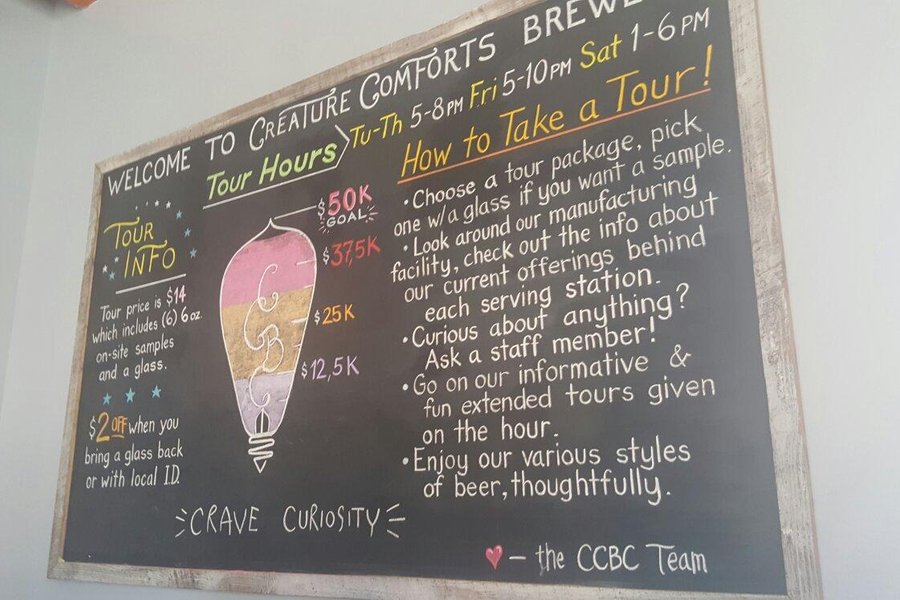 WELCOME TO CREATURE COMFORTS
Tour Hours Tu-Th 5-8PM Fri 5-10PM Sat 1-6PM
TOUR
INFO
Tour price is $14
which includes (6) 6oz
on-site samples
and a glass.
$2 OFF when you
bring a glass back
or with local I.D.
$50K
GOAL
$37,5K
$25K
$12,5K
CCBC
How to Take a Tour!
• Choose a tour package, pick
one w/a glass if you want a sample.
• Look around our manufacturing
facility, check out the info about
our current offerings behind
each serving station.
• Curious about anything?
Ask a staff member!
• Go on our informative &
fun extended tours given
on the hour.
• Enjoy our various styles
of beer, thoughtfully.
CRAVE CURIOSITY
– the CCBC Team